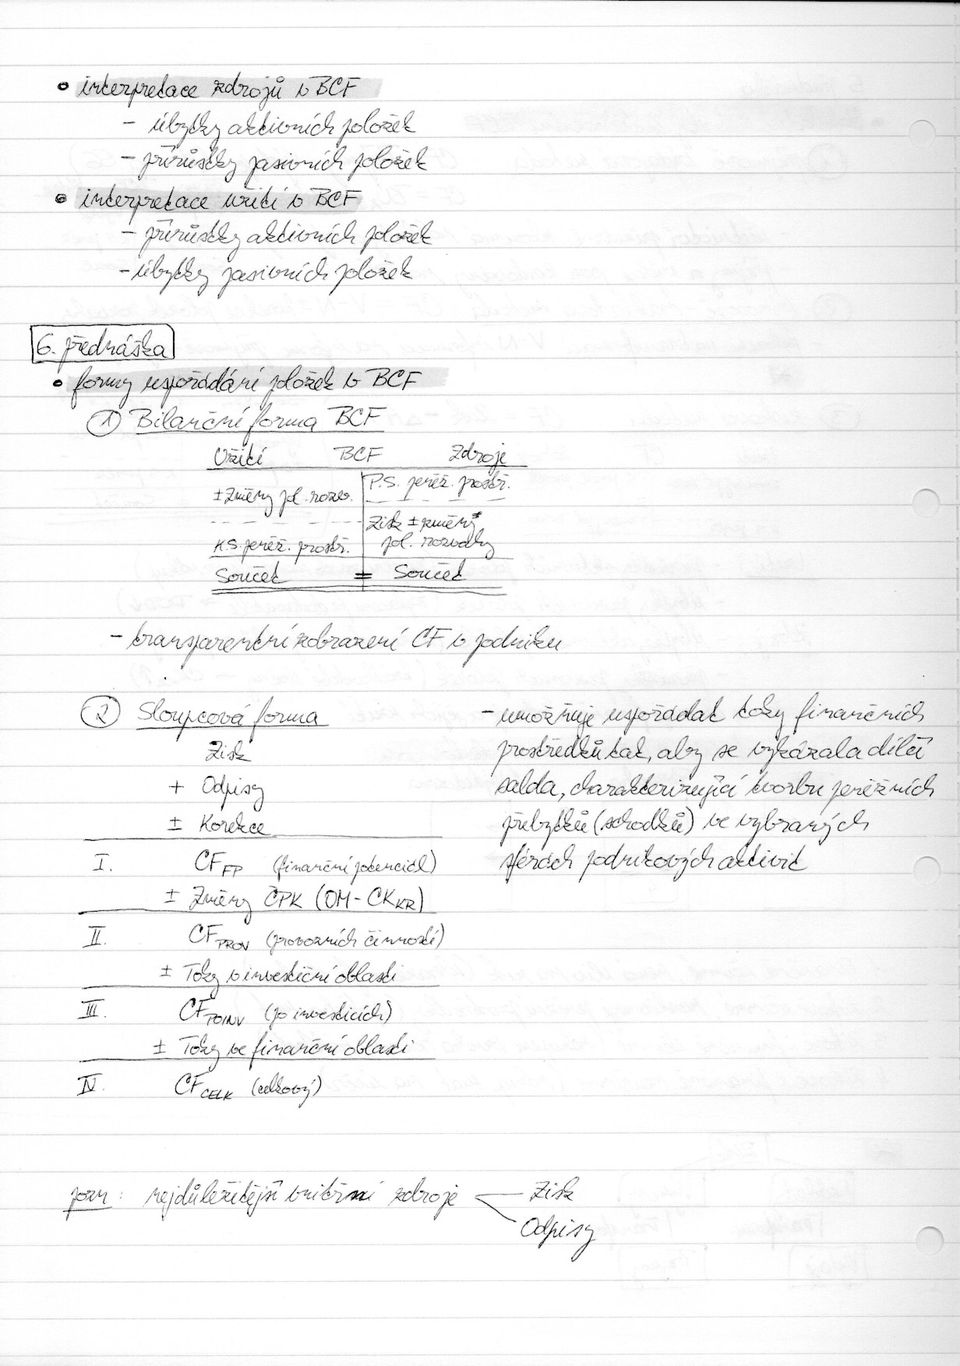 • interpretace zdrojů v BCF
- úbytky aktivních položek
- přírůstky pasivních položek
• interpretace užití v BCF
- přírůstky aktivních položek
- úbytky pasivních položek
6. přednáška
• formy uspořádání položek v BCF
① Bilanční forma BCF
Užití BCF Zdroje
± změny pol. rozv. P.S. peněž. prostř.
Zisk ± změny
K.S. peněž. prostř. pol. rozvahy
Součet = Součet
- transparentní zobrazení CF v podniku
② Sloupcová forma
Zisk
+ Odpisy
± Korekce
I. CF FP (finanční potenciál)
± Změny ČPK (OM - CK KR)
II. CF PROV (provozních činností)
± Toky v investiční oblasti
III. CF POINV (po investicích)
± Toky ve finanční oblasti
IV. CF CELK (celkový)
- umožňuje uspořádat toky finančních
prostředků tak, aby se vykázala dílčí
salda, charakterizující tvorbu peněžních
přebytků (schodků) ve vybraných
sférách podnikových aktivit
pozn: nejdůležitější vnitřní zdroje Zisk
Odpisy